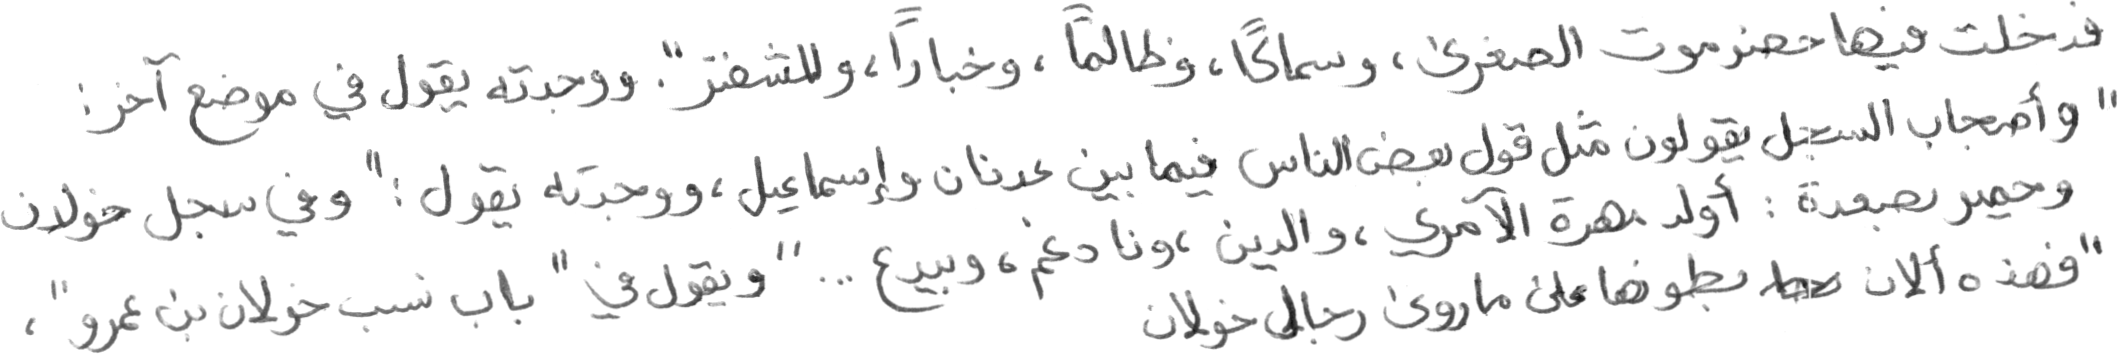 فدخلت فيها حضرموت الصغرى، وسماكًا، وظالمًا، وخبارًا، وللشفتز". ووجدته يقول في موضع آخر:
"وأصحاب السجل يقولون مثل قول بعض الناس فيما بين عدنان وإسماعيل، ووجدته يقول: "وفي سجل خولان
وحمير بصعدة: أولد مهرة الآمري، والدين، ونادغم، وبيدع ... "ويقول في "باب نسب خولان بن عمرو"،
"فهذه ألان بطونها على ما روى رجال خولان